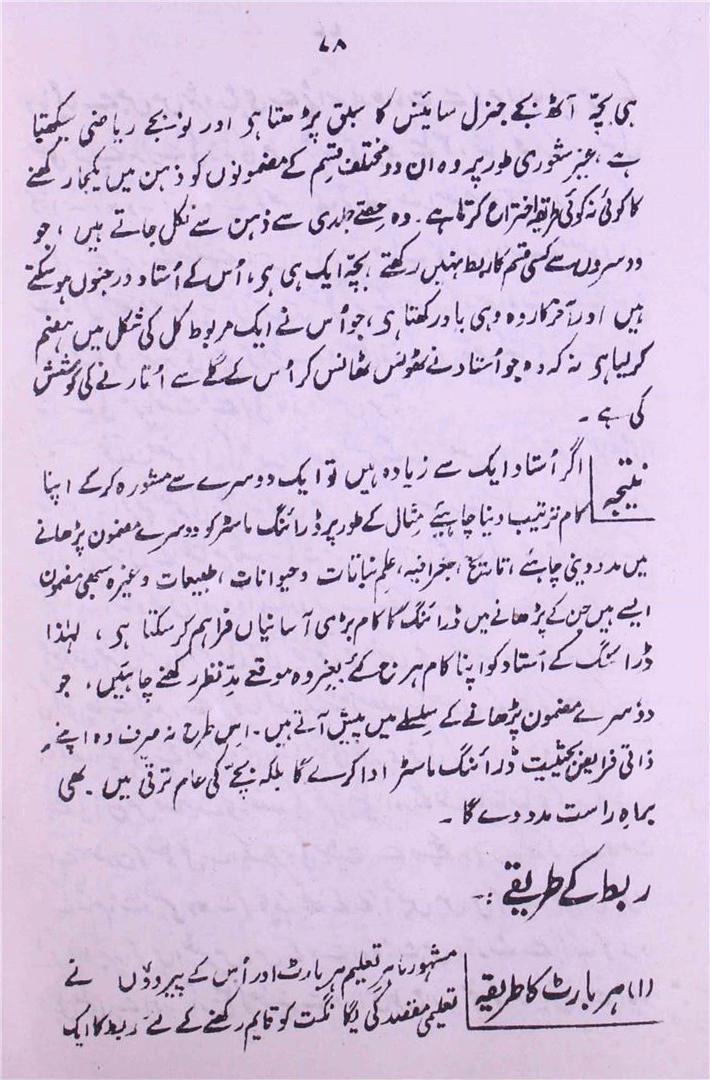 ۷۸
ہی بچّہ آٹھ بجے جنرل سائینس کا سبق پڑھتا ہو اور نو بجے ریاضی سیکھتا
ہے، غیر شعوری طور پر وہ ان دو مختلف قسم کے مضمونوں کو ذہن میں یکجا رکھنے
کا کوئی نہ کوئی طریقہ اختراع کرتا ہے۔ وہ حصّے جلدی سے ذہن سے نکل جاتے ہیں، جو
دوسروں سے کسی قسم کا ربط نہیں رکھتے بچّہ ایک ہی ہو، اُس کے اُستاد درجنوں ہو سکتے
ہیں اور آخر کار وہ وہی یاد رکھتا ہو، جو اُس نے ایک مربوط کل کی شکل میں ہضم
کر لیا ہو نہ کہ وہ جو اُستاد نے ٹھونس ٹھانس کر اُس کے گلے سے اُتارنے کی کوشش
کی ہے۔
نتیجہ اگر اُستاد ایک سے زیادہ ہیں تو ایک دوسرے سے مشورہ کر کے اپنا
کام ترتیب دینا چاہیئے مثال کے طور پر ڈرائنگ ماسٹر کو دوسرے مضمون پڑھانے
میں مدد دینی چاہئے، تاریخ، جغرافیہ، علم نباتات و حیوانات، طبیعات وغیرہ سبھی مضمون
ایسے ہیں جن کے پڑھانے میں ڈرائنگ کا کام بڑی آسانیاں فراہم کر سکتا ہو، لہٰذا
ڈرائنگ کے اُستاد کو اپنا کام ہرج کئے بغیر وہ موقعے مدِّ نظر رکھنے چاہئیں، جو
دوسرے مضمون پڑھانے کے سلسلے میں پیش آتے ہیں۔ اس طرح نہ صرف وہ اپنے
ذاتی فریضِ بحیثیت ڈرائنگ ماسٹر ادا کرے گا بلکہ بچّے کی عام ترقی میں۔ بھی
براہِ راست مدد دے گا۔
ربط کے طریقے :۔
(۱) ہر بارٹ کا طریقہ مشہور ماہرِ تعلیم ہر بارٹ اور اُس کے پیروؤں نے
تعلیمی مقصد کی یگانگت کو قایم رکھنے کے لئے ربط کا ایک